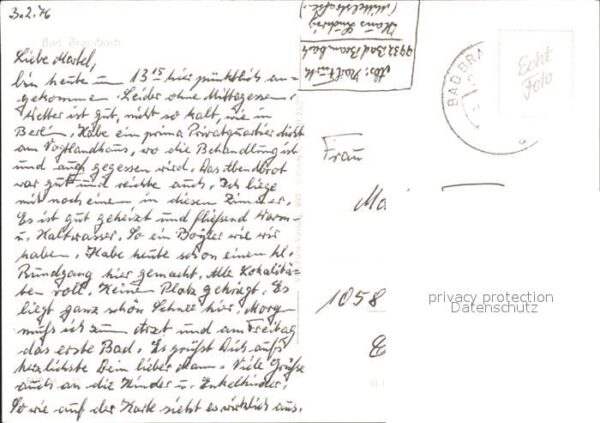 3.2.76
Bad Brambach
Liebe Martel,
bin heute um 13 15 hier pünktlich an-
gekommen. Leider ohne Mittagessen.
Wetter ist gut, nicht so kalt, wie in
Berl. Habe ein prima Privatquartier dicht
am Vogtlandhaus, wo die Behandlung ist
und auch gegessen wird. Das Abendbrot
war gut und reichte auch. Ich liege
mit noch einem in diesen Zimmer.
Es ist gut geheizt und fließend Warm-
u. Kaltwasser. So ein Boyler wie wir
haben. Habe heute schon einen kl.
Rundgang hier gemacht. Alle Lokalitä-
ten voll. Keinen Platz gekriegt. Es
liegt ganz schön Schnee hier. Morg.
muß ich zum Arzt und am Freitag
das erste Bad. Es grüßt Dich aufs
herzlichste Dein lieber Mann. Viele Grüße
auch an die Kinder u. Enkelkinder.
So wie auf der Karte sieht es wirklich aus.
Abs:
9932 Bad Brambach
Haus
BAD BRA
Echt
Foto
Frau
Ma
1058
privacy protection
Datenschutz